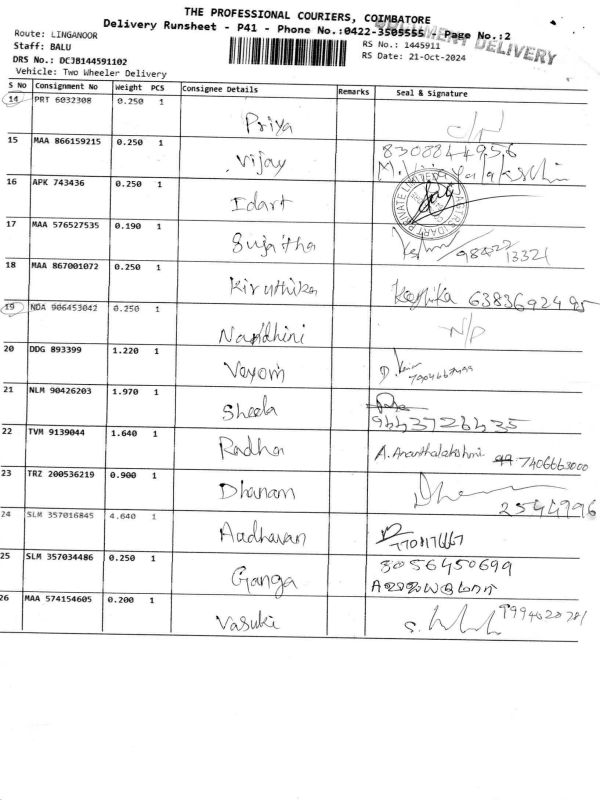 THE PROFESSIONAL COURIERS, COIMBATORE
Delivery Runsheet - P41 - Phone No.:0422-3505555 - Page No.:2
DOCUMENT DELIVERY
Route: LINGANOOR
RS No.: 1445911
Staff: BALU
RS Date: 21-Oct-2024
DRS No.: DCJB144591102
Vehicle: Two Wheeler Delivery
S No Consignment No Weight PCS Consignee Details Remarks Seal & Signature
14 PRT 6032308 0.250 1 Priya
15 MAA 866159215 0.250 1 Vijay 8308844956
16 APK 743436 0.250 1 Idart
17 MAA 576527535 0.190 1 Sujaitha
18 MAA 867001072 0.250 1 Kiruthika Karthika 6383692495
19 NDA 906453042 0.250 1 Nandhini N/P
20 DDG 893399 1.220 1 Vayom
21 NLM 90426203 1.970 1 Sheela 9663726435
22 TVM 9139044 1.640 1 Radha A. Ananthalakshmi 7406663000
23 TRZ 200536219 0.900 1 Dhanam 2544996
24 SLM 357016845 4.640 1 Aadhavan
25 SLM 357034486 0.250 1 Ganga 3056450699
26 MAA 574154605 0.200 1 Vasuki